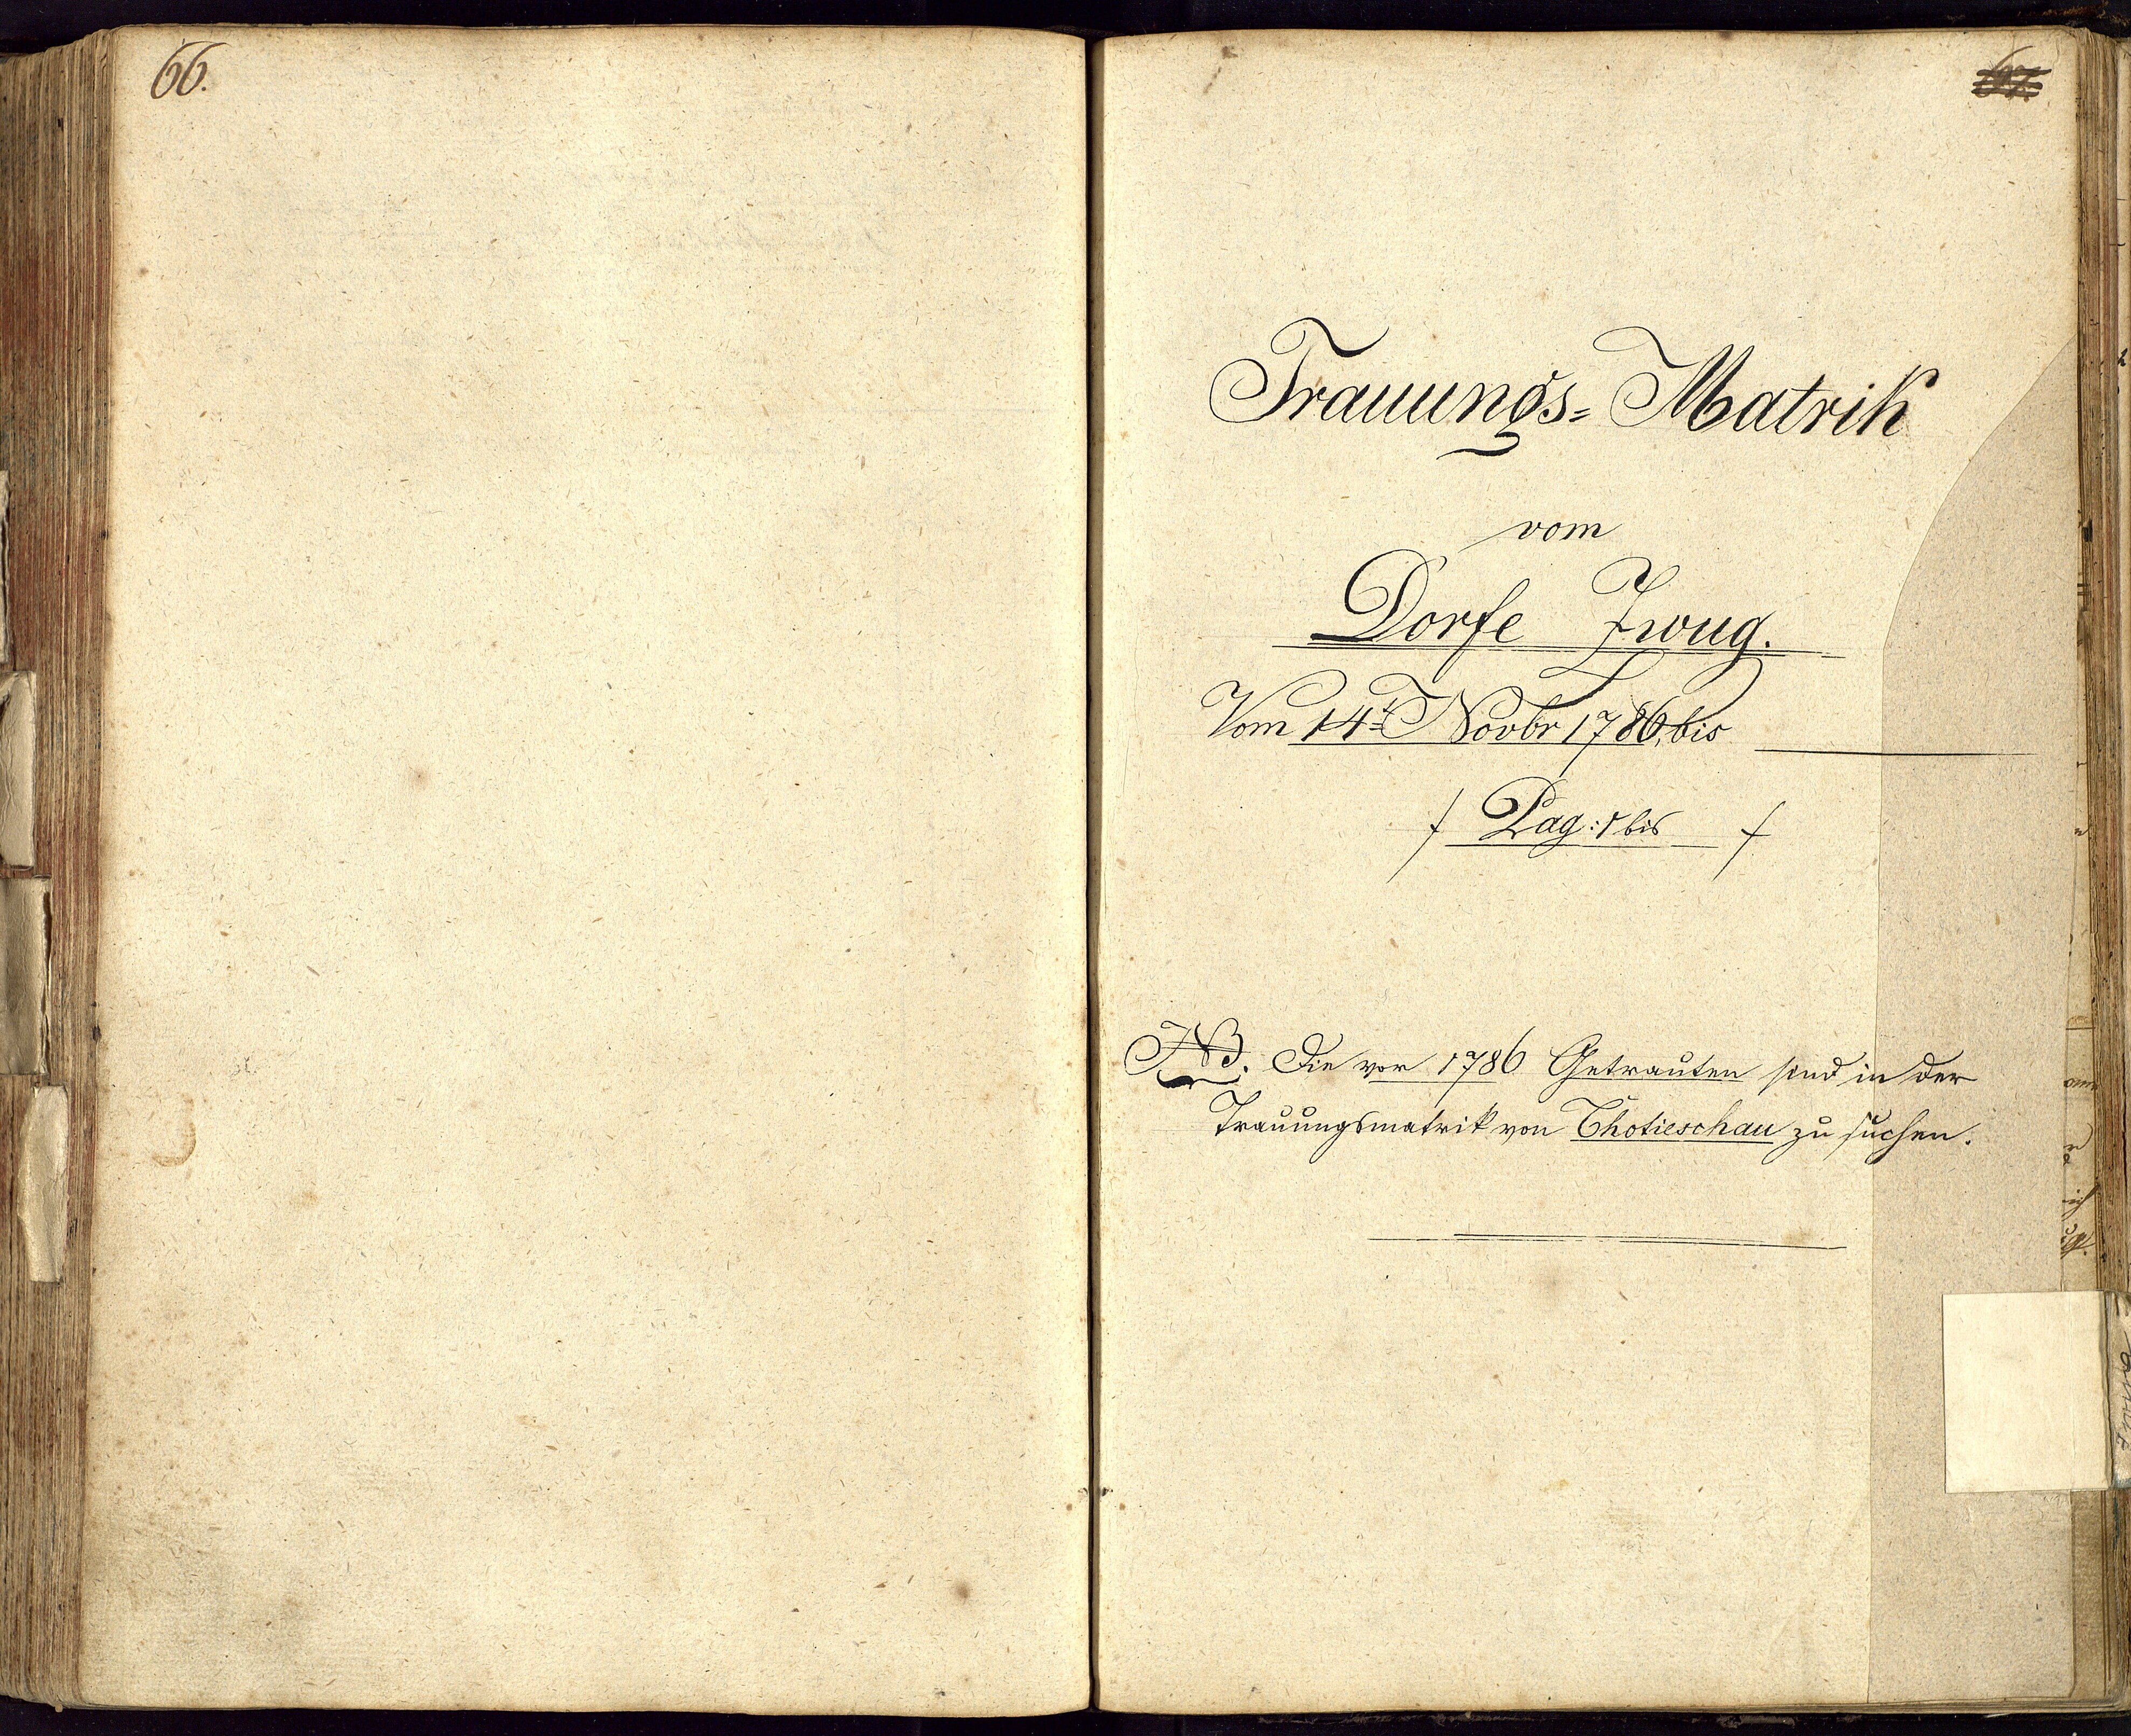 66.
67.
Trauungs= Matrik
vom
Dorfe Zwug.
Vom 14t Novbr 1786, bis
/ Pag: 1 bis /
NB. Die vor 1786 Getrauten sind in der
Trauungsmatrik von Chotieschau zu suchen.